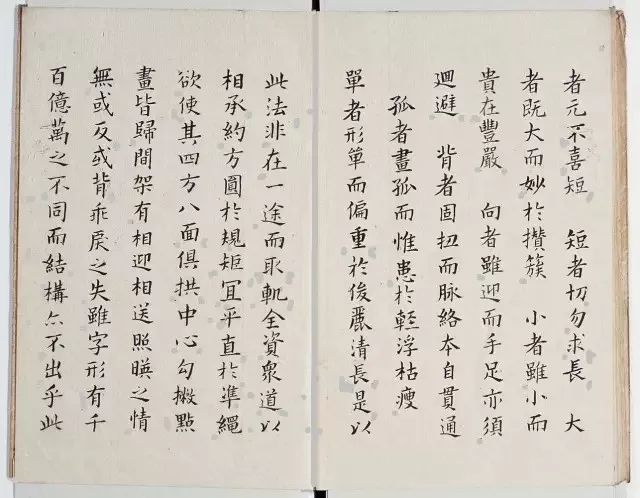 者元不喜短　短者切勿求長　大
者既大而妙於攢簇　小者雖小而
貴在豐嚴　向者雖迎而手足亦須
迴避　背者固扭而脉絡本自貫通
孤者畫孤而惟患於輕浮枯瘦
單者形單而偏重於俊麗清長是以
此法非在一途而取軌全資衆道以
相承約方圓於規矩冝平直於準繩
欲使其四方八面俱拱中心勾撇點
畫皆歸間架有相迎相送照暎之情
無或反或背乖戾之失雖字形有千
百億萬之不同而結構亦不出乎此